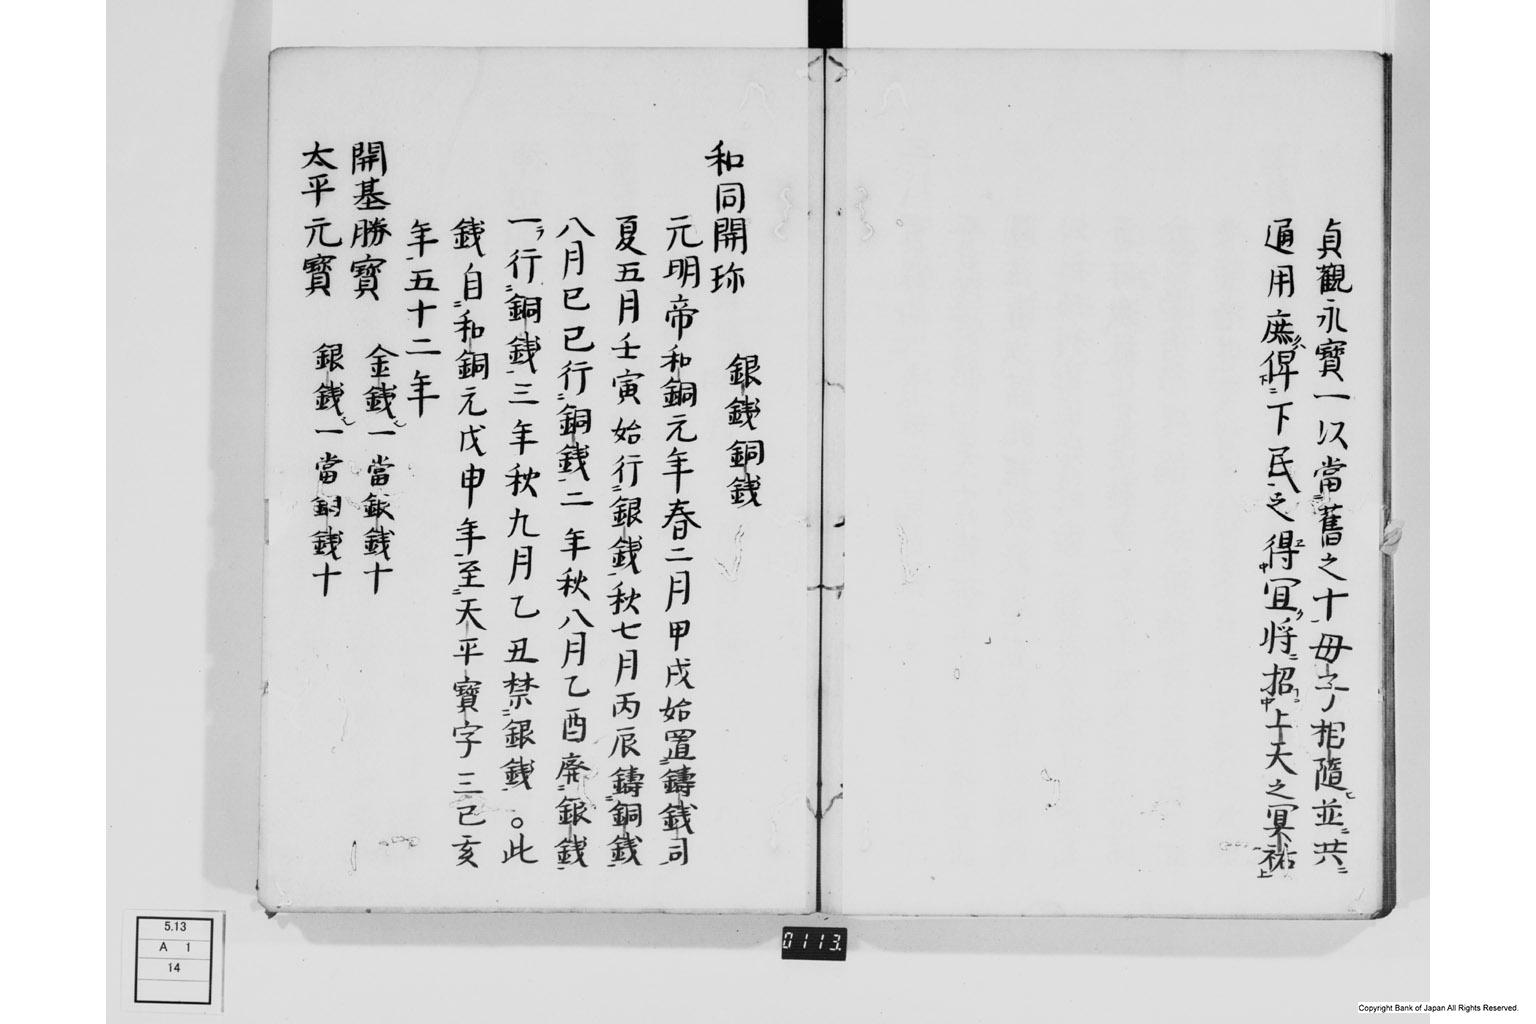 貞觀永寶一以當舊之十毋子相隨並共
通用庶俾下民之得冝將招上天之冥祐
和同開珎
銀錢銅錢
元明帝和銅元年春二月甲戌始置鑄錢司
夏五月壬寅始行銀錢秋七月丙辰鑄銅錢
八月己巳行銅錢二年秋八月乙酉廃銀錢
一行銅錢三年秋九月乙丑禁銀錢。此
錢自和銅元戊申年至天平寶字三己亥
年五十二年
開基勝寶 金錢一當銀錢十
太平元寶 銀錢一當銅錢十
0113.
5.13
A 1
14
Copyright Bank of Japan All Rights Reserved.